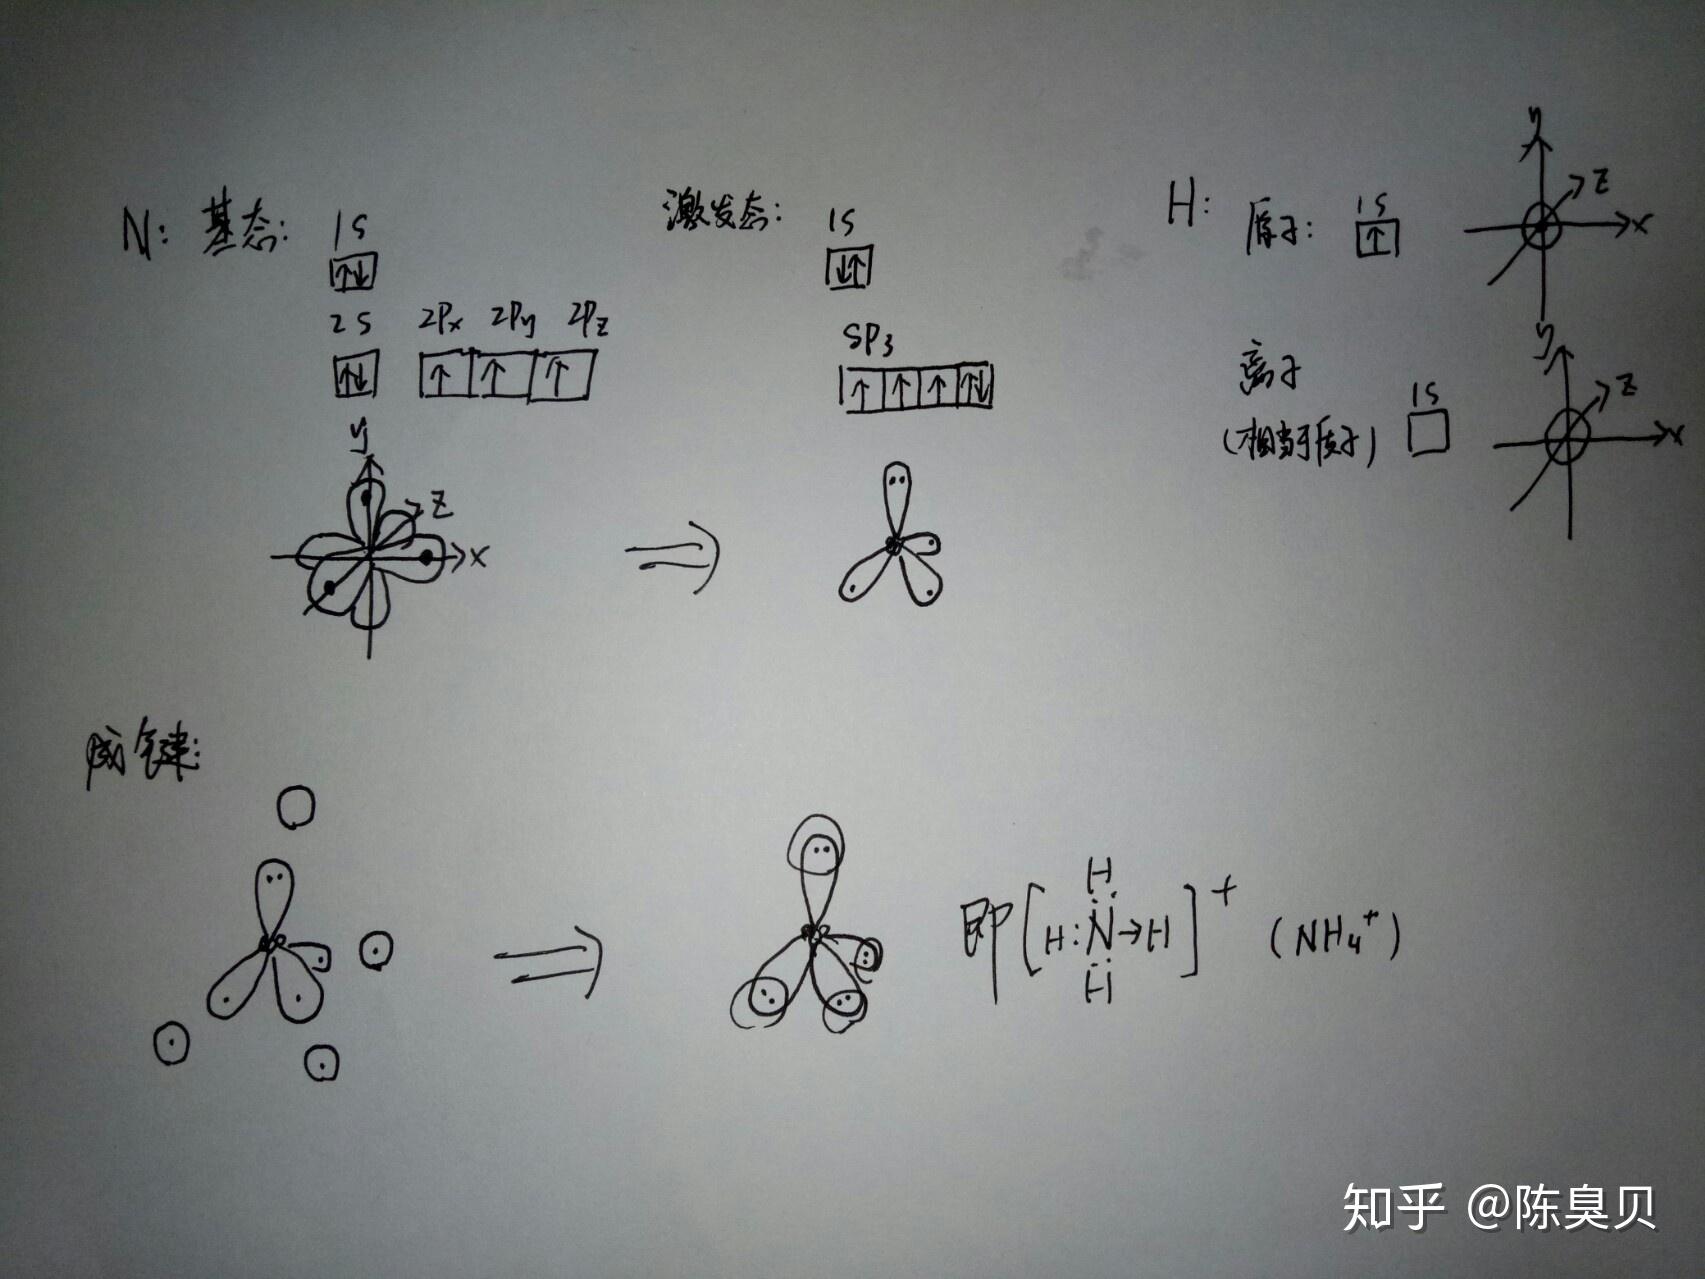 N: 基态: 1S
2S 2Px 2Py 2Pz
y
z
x
激发态: 1S
SP3
H: 原子: 1S
y
z
x
离子
(相当于质子) 1S
y
z
x
成键:
即[H:N→H]+ (NH4+)
H
H
知乎 @陈臭贝